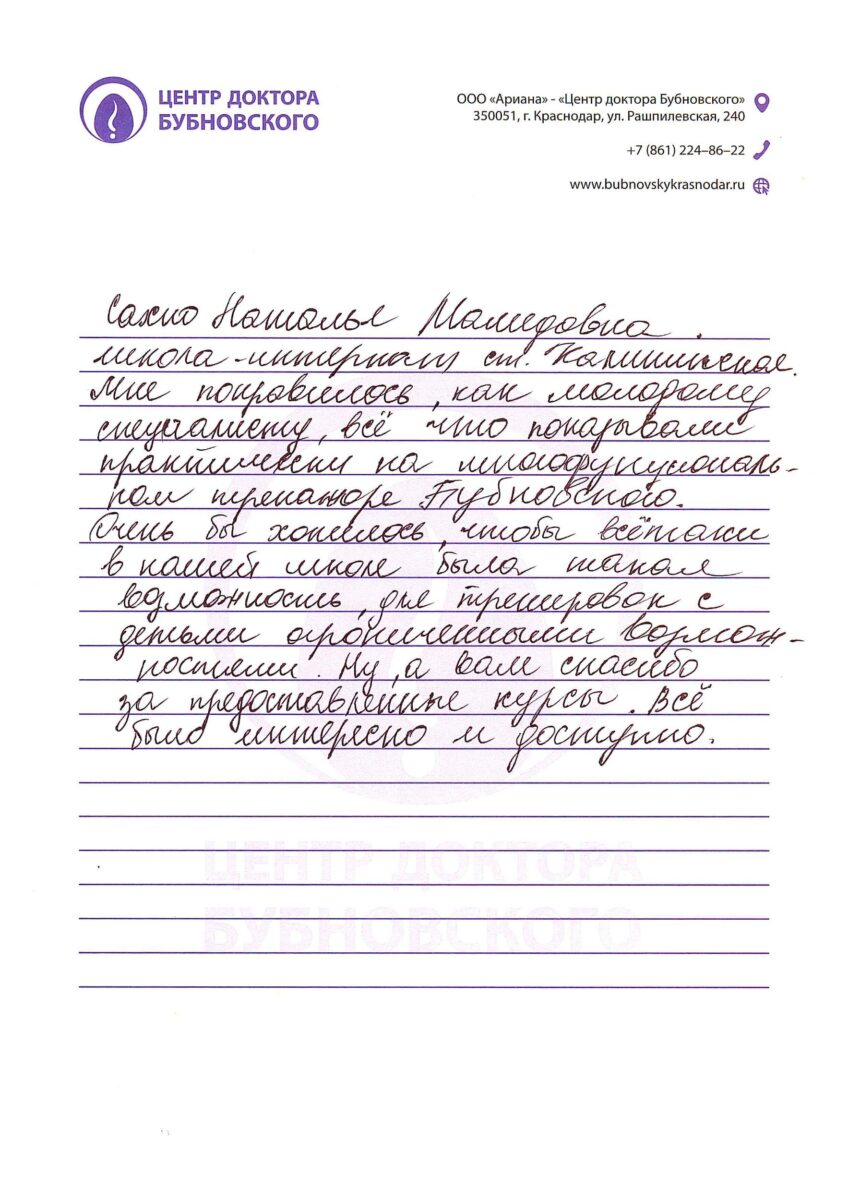 ЦЕНТР ДОКТОРА
БУБНОВСКОГО
ООО «Ариана» - «Центр доктора Бубновского»
350051, г. Краснодар, ул. Рашпилевская, 240
+7 (861) 224–86–22
www.bubnovskykrasnodar.ru
Сахно Наталья Мамедовна.
школа-интернат ст. Калининская.
Мне понравилось, как молодому
специалисту, всё что показывали
практически на многофункциональ-
ном тренажоре Бубновского.
Очень бы хотелось, чтобы всётаки
в нашей школе была такая
возможность, для тренировок с
детьми ограниченными возмож-
ностями. Ну, а вам спасибо
за предоставленные курсы. Всё
было интересно и доступно.
ЦЕНТР ДОКТОРА
БУБНОВСКОГО